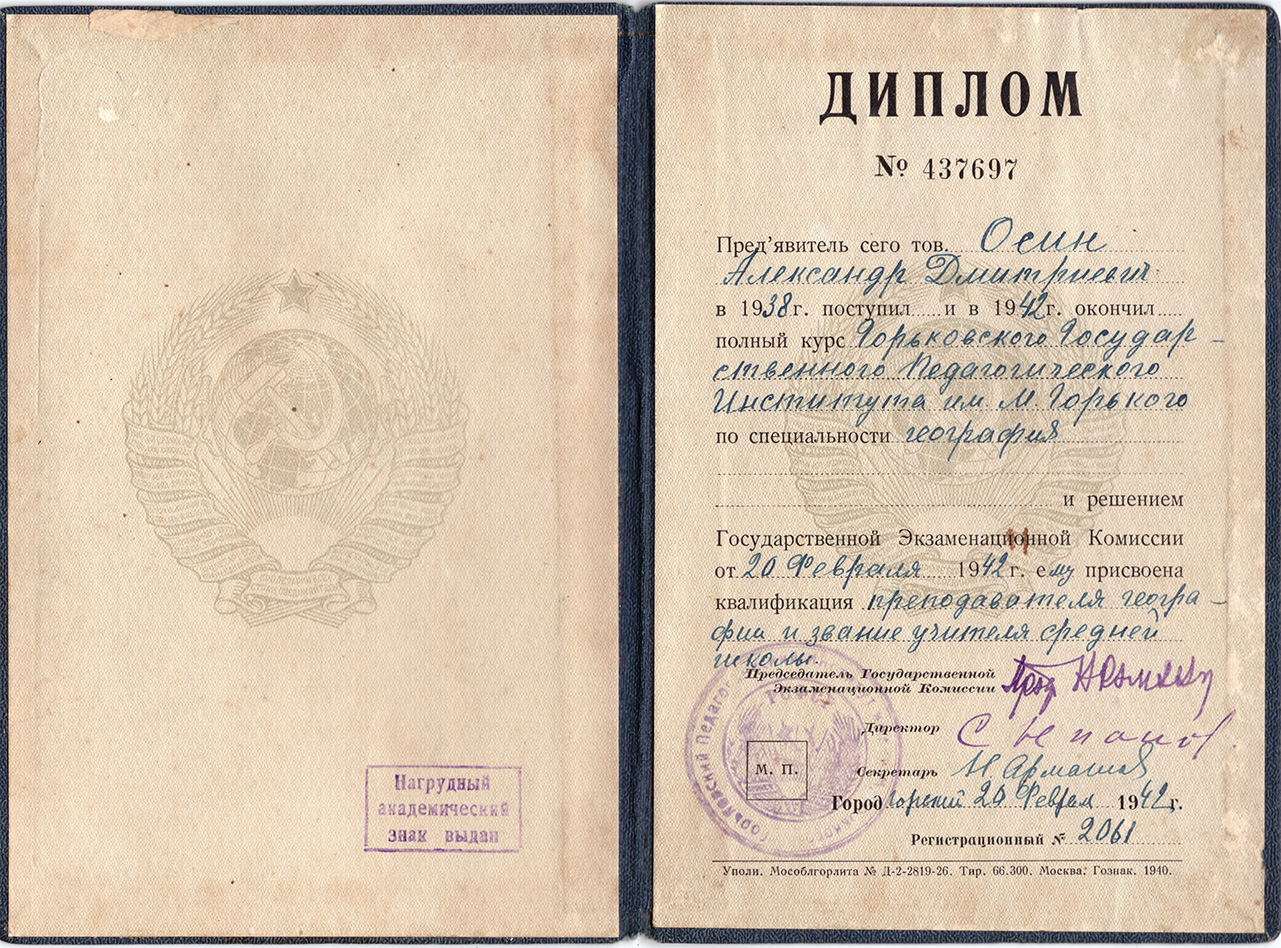 Нагрудный
академический
знак выдан
ДИПЛОМ
№ 437697
Пред'явитель сего тов. Осин
Александр Дмитриевич
в 1938 г. поступил и в 1942 г. окончил
полный курс Горьковского Государ-
ственного Педагогического
Института им М. Горького
по специальности география
и решением
Государственной Экзаменационной Комиссии
от 20 Февраля 1942 г. ему присвоена
квалификация преподавателя геогра-
фии и звание учителя средней
школы.
Председатель Государственной
Экзаменационной Комиссии
Директор Степанов
Секретарь
М. П.
Город Горький 20 Феврал 1942 г.
Регистрационный № 2061
Горьковский Педагог
Уполн. Мособлгорлита № Д-2-2819-26. Тир. 66.300. Москва. Гознак. 1940.